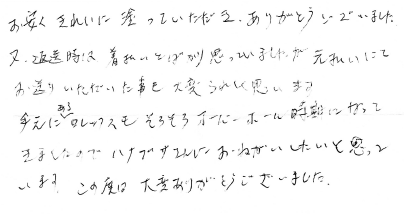 お安く きれいに 塗っていただき、ありがとうございました
又、返送時は 着払いとばかり思っていましたが 元払いにて
お送りいただいた事も 大変うれしく思います
手元にある ロレックスも そろそろオーバーホール時期になって
きましたので ハナブサさんに おねがいしたいと思って
います この度は 大変ありがとうございました.